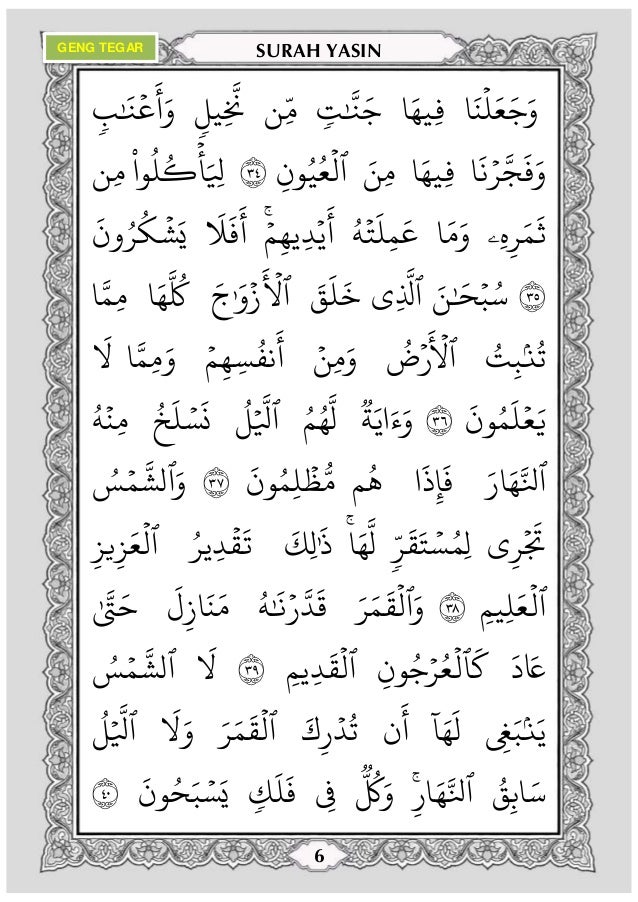 GENG TEGAR
SURAH YASIN
وَجَعَلْنَا فِيهَا جَنَّـٰتٍ مِّن نَّخِيلٍ وَأَعْنَـٰبٍ
وَفَجَّرْنَا فِيهَا مِنَ ٱلْعُيُونِ ٣٤ لِيَأْكُلُوا۟ مِن
ثَمَرِهِۦ وَمَا عَمِلَتْهُ أَيْدِيهِمْ ۖ أَفَلَا يَشْكُرُونَ
٣٥ سُبْحَـٰنَ ٱلَّذِى خَلَقَ ٱلْأَزْوَٰجَ كُلَّهَا مِمَّا
تُنۢبِتُ ٱلْأَرْضُ وَمِنْ أَنفُسِهِمْ وَمِمَّا لَا
يَعْلَمُونَ ٣٦ وَءَايَةٌ لَّهُمُ ٱلَّيْلُ نَسْلَخُ مِنْهُ
ٱلنَّهَارَ فَإِذَا هُم مُّظْلِمُونَ ٣٧ وَٱلشَّمْسُ
تَجْرِى لِمُسْتَقَرٍّ لَّهَا ۚ ذَٰلِكَ تَقْدِيرُ ٱلْعَزِيزِ
ٱلْعَلِيمِ ٣٨ وَٱلْقَمَرَ قَدَّرْنَـٰهُ مَنَازِلَ حَتَّىٰ
عَادَ كَٱلْعُرْجُونِ ٱلْقَدِيمِ ٣٩ لَا ٱلشَّمْسُ
يَنۢبَغِى لَهَآ أَن تُدْرِكَ ٱلْقَمَرَ وَلَا ٱلَّيْلُ
سَابِقُ ٱلنَّهَارِ ۚ وَكُلٌّ فِى فَلَكٍ يَسْبَحُونَ ٤٠
6